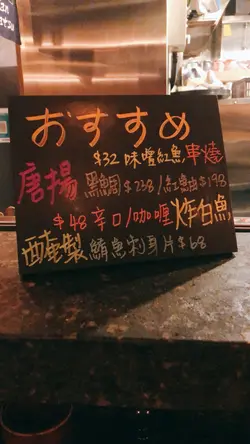 おすすめ
$32 味噌紅魚 串燒
唐揚 黑鯛 $238 / 紅魚 $198
$48 辛口/咖喱 炸白魚
醃製 鯖魚刺身 片 $68